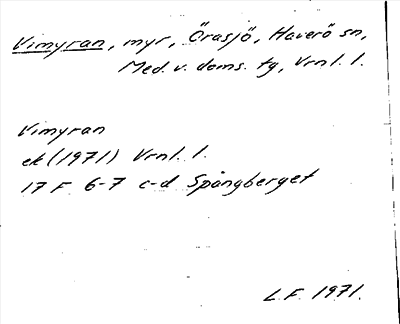 Vimyran, myr, Örasjö, Haverö sn,
Med. v. doms. tg, Vrnl. l.
Vimyran
ek (1971) Vrnl. l.
17 F 6-7 c-d Spångberget
L.F. 1971.